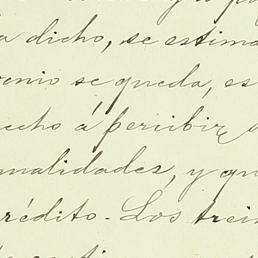 dicho, se estima
se queda, es
á periibir
malidades, y qu
rédito. Los trein